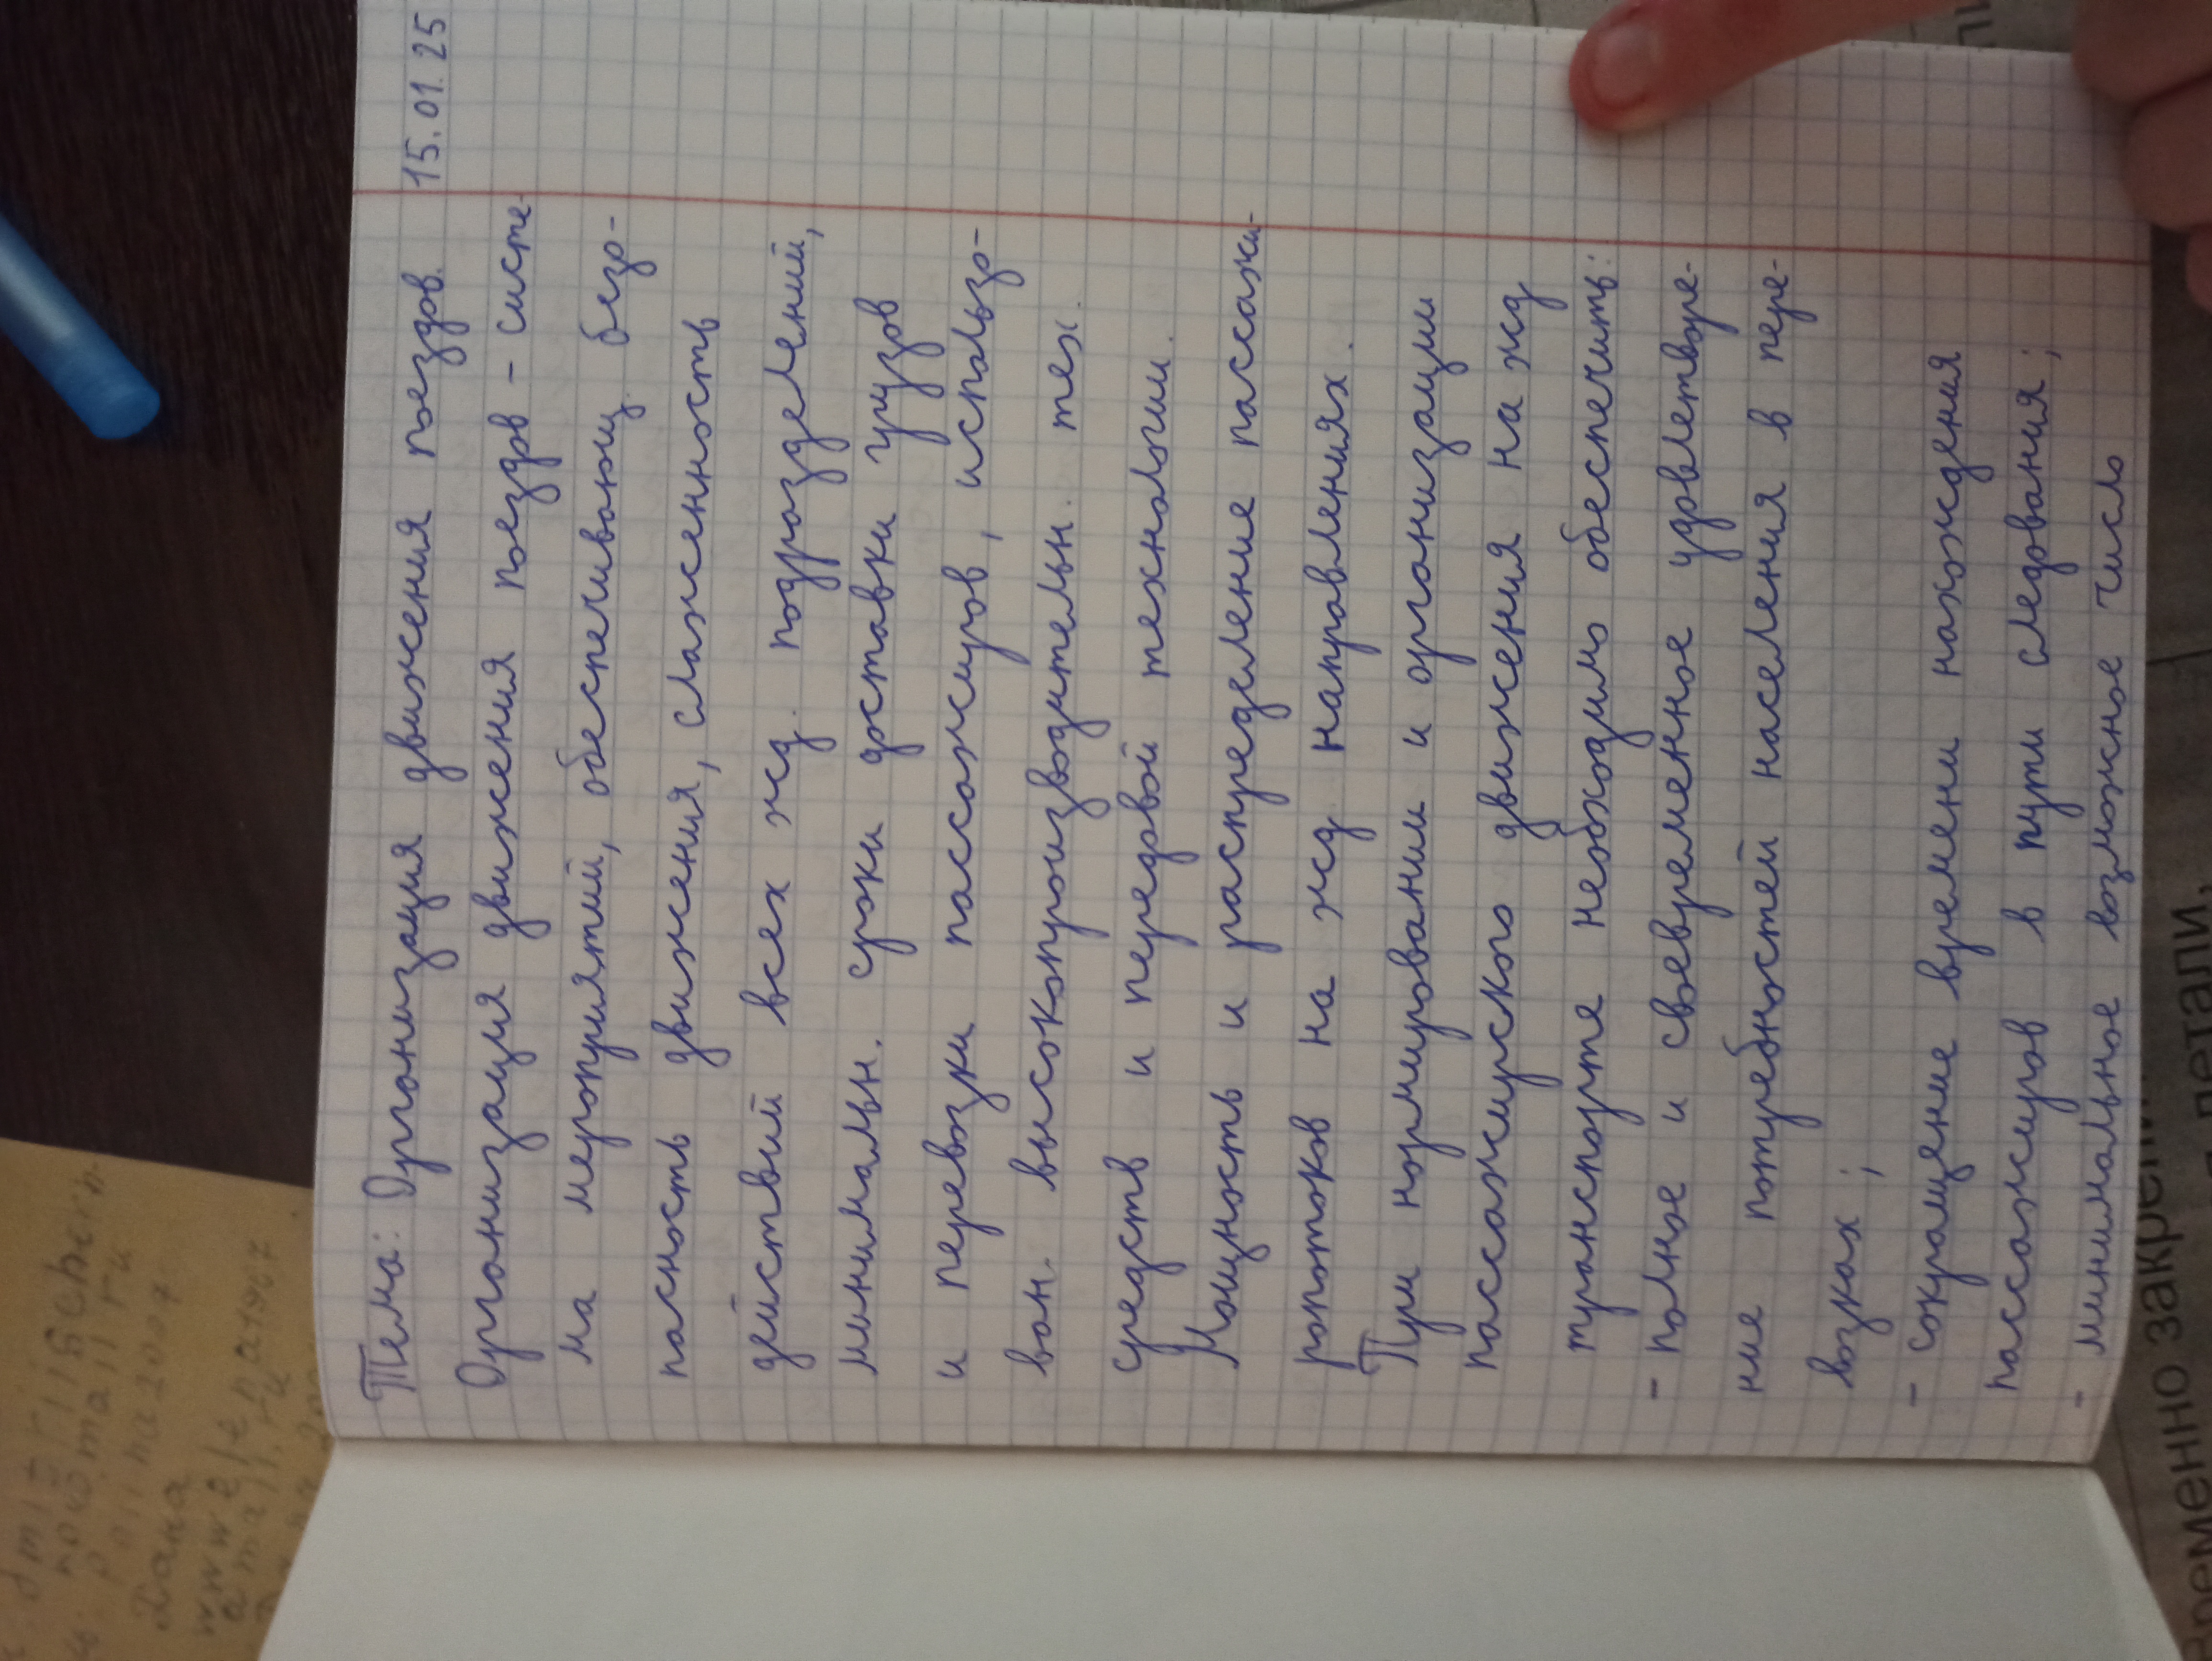 15.01.25
Тема: Организация движения поездов.
Организация движения поездов - систе-
ма мероприятий, обеспечивающ. безо-
пасность движения, слаженность
действий всех жд. подразделений,
минимальн. сроки доставки грузов
и перевозки пассажиров, использо-
ван. высокопроизводительн. тех.
средств и передовой технологии.
Мощность и распределение пассажи-
ропотоков на жд направлениях.
При нормировании и организации
пассажирского движения на жд
транспорте необходимо обеспечить:
- полное и своевременное удовлетворе-
ние потребностей населения в пере-
возках;
- сокращение времени нахождения
пассажиров в пути следования;
- минимальное возможное число
временно
детали,